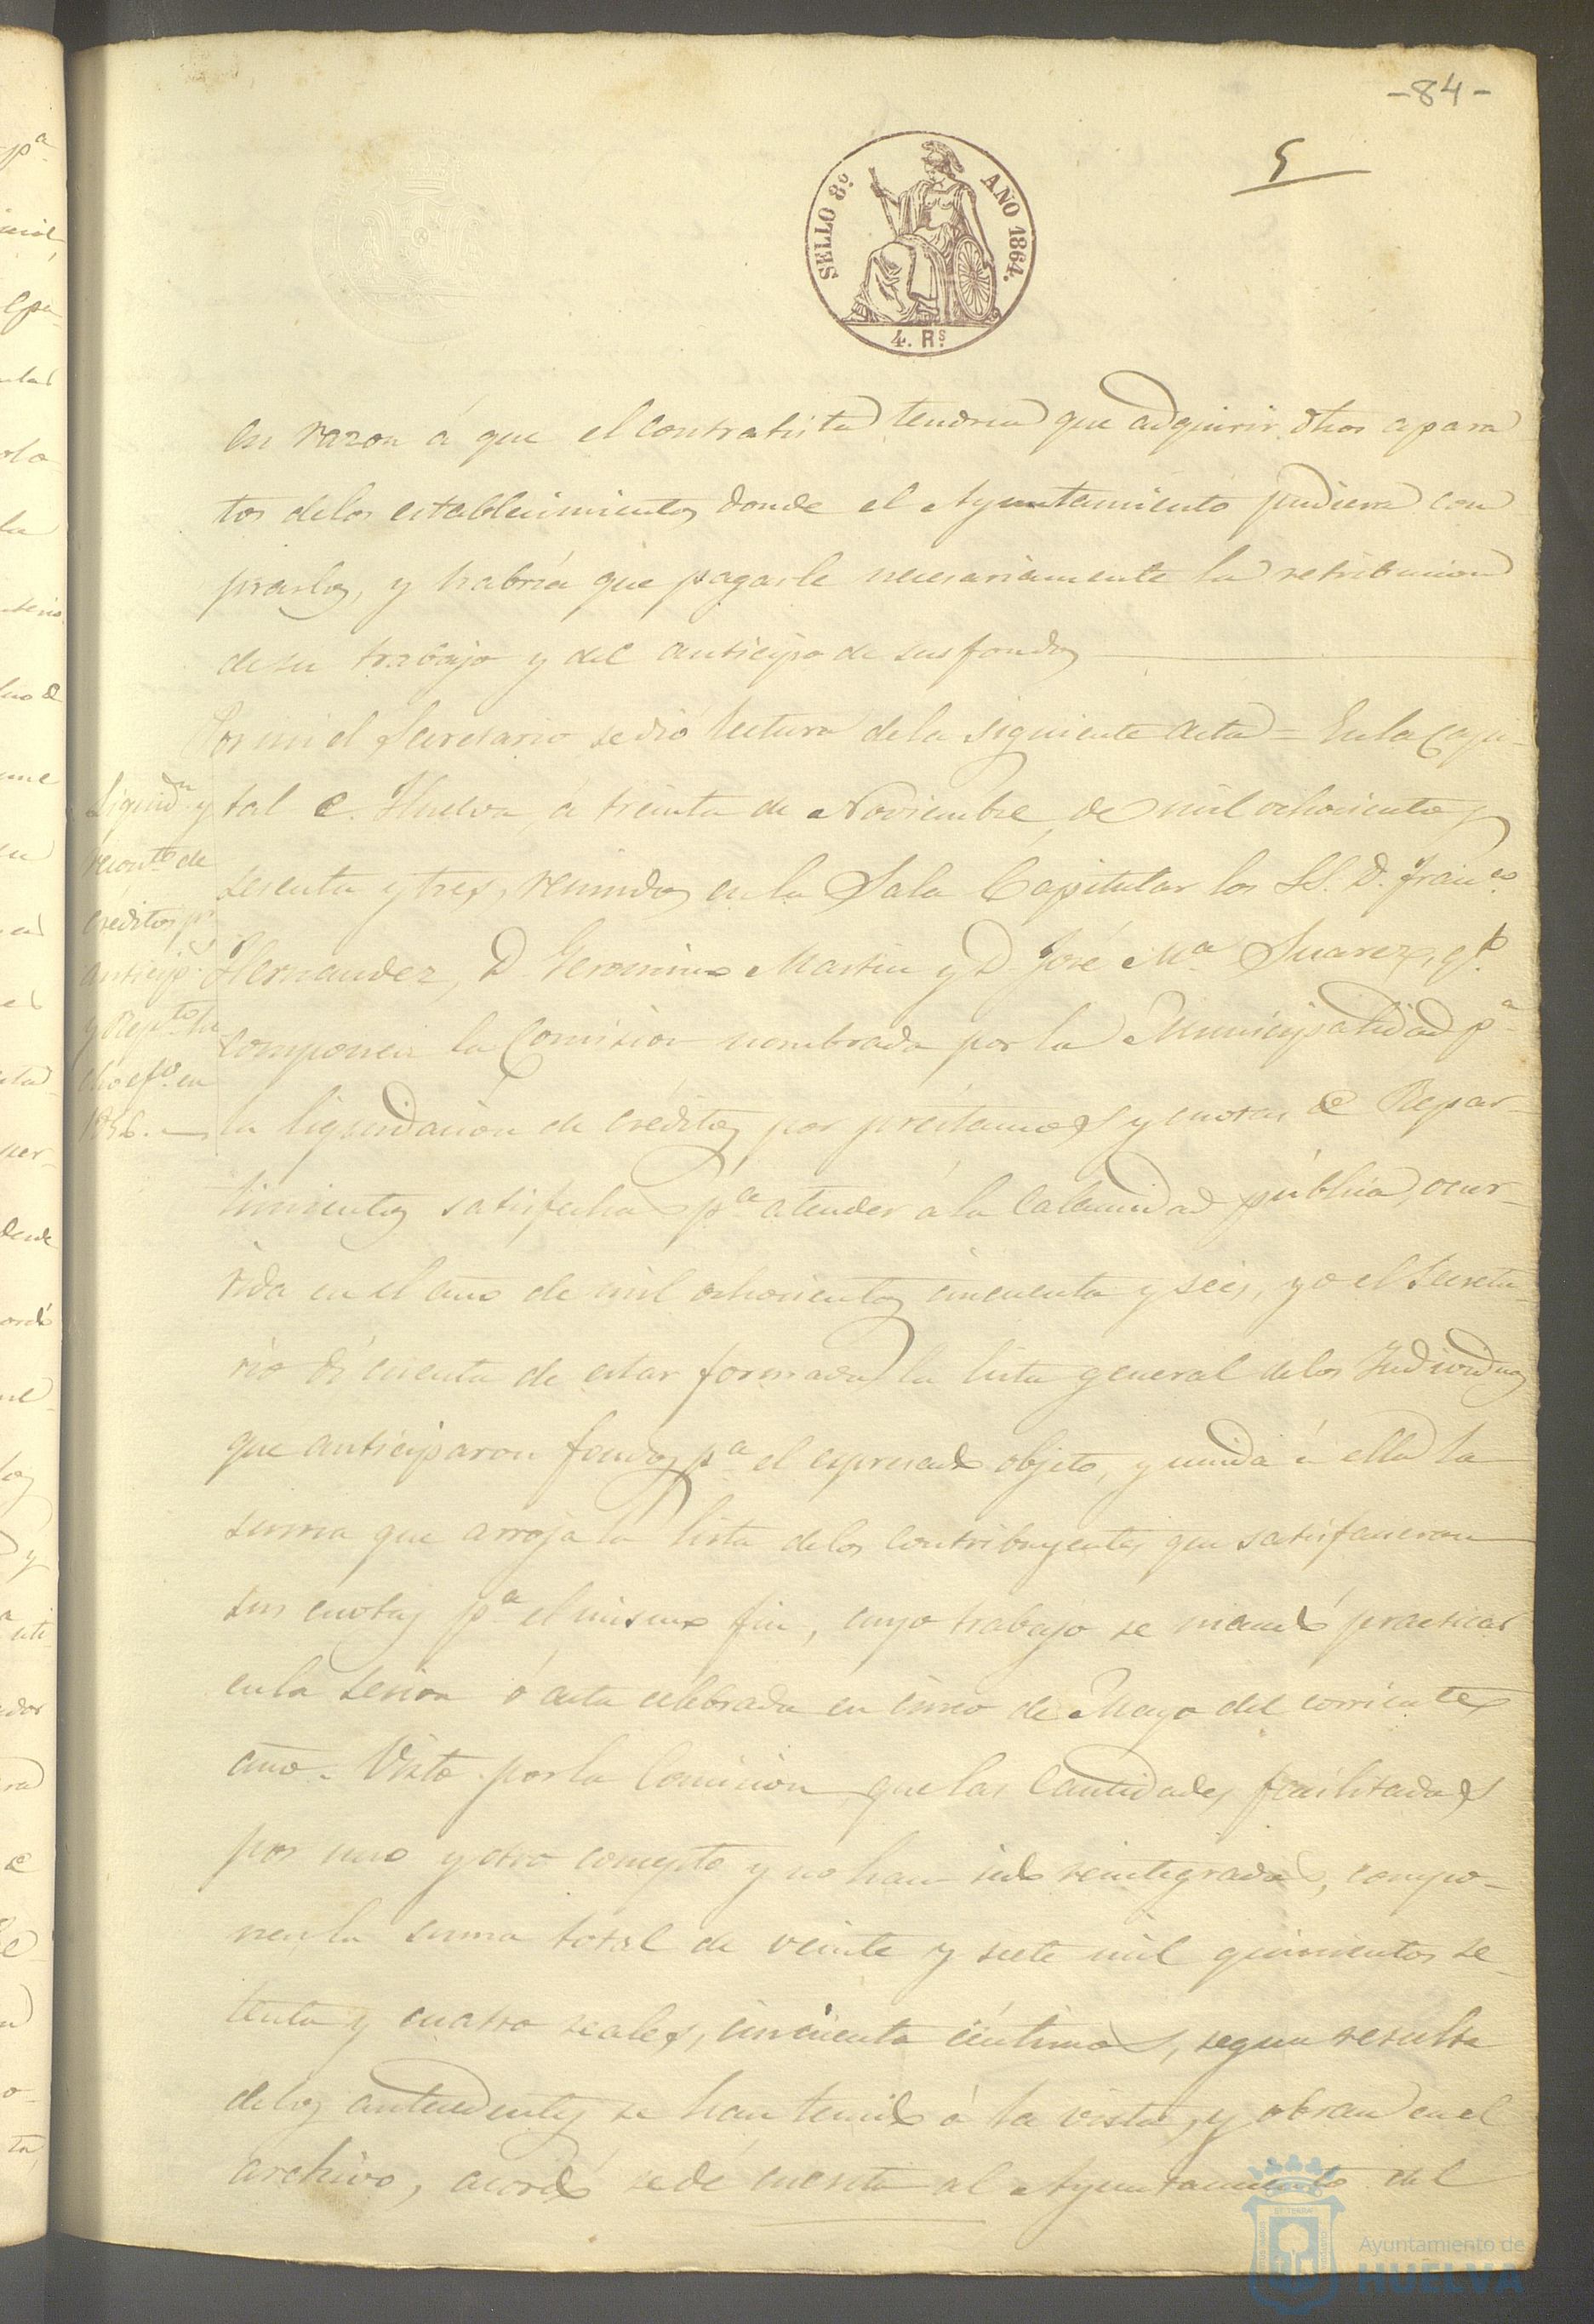 -84-
5
SELLO 8º AÑO 1864.
4. Rs
en razon á que el contratista tendria que adquirir dhos apara
tos delos establecimientos donde el Ayuntamiento pudiera com
prarlos, y habria que pagarle necesariamente la retribucion
desu trabajo y del anticipo de sus fondos
Por mi el Secretario se dió lectura dela siguiente acta = En la Capi-
tal de Huelva, á treinta de Noviembre, de mil ochocientos
sesenta y tres, reunidos en la Sala Capitular los SS. D. Franco.
Hernandez, D Geronimo Martin y D José Ma Suarez, qe.
componen la Comision nombrada por la Municipalidad pa
la liquidacion de créditos por préstamos y cuotas de Repar-
timientos satisfechas pa atender á la Calamidad pública, ocur-
rida en el año de mil ochocientos cincuenta y seis, yo el Secreta-
rio dí cuenta de estar formada la lista general delos Individuos
que anticiparon fondos pa el espresado objeto, y unida á ella la
suma que arroja la lista delos contribuyentes que satisfacieron
sus cuotas pa el mismo fin, cuyo trabajo se mandó practicar
en la sesion ó acta celebrada en cinco de Mayo del corriente
año. Visto por la Comision que las Cantidades facilitadas
por uno y otro concepto y no han sido reintegradas, compo-
nen la suma total de veinte y siete mil quinientos se-
tenta y cuatro reales, cincuenta céntimos, segun resulta
delos antecedentes se han tenido á la vista, y obran en el
archivo, acordó se dé cuenta al Ayuntamiento del
Liquidn. y
reconto. de
créditos pr
anticip.
y Repto.
efo. en
1856.
Ayuntamiento de
HUELVA